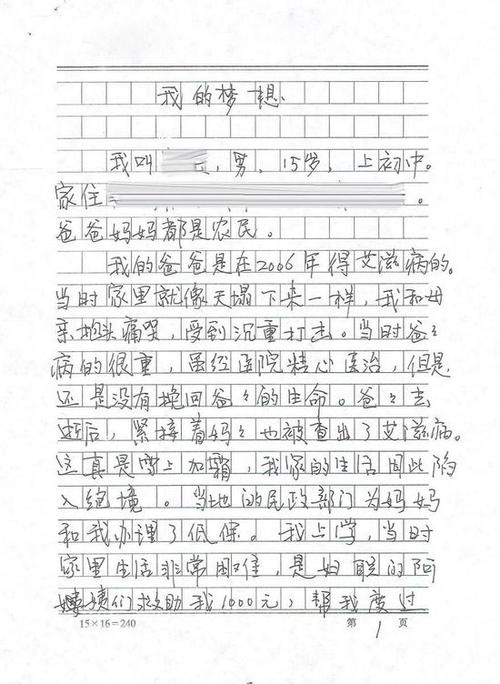 我的梦想
我叫 ，男，15岁，上初中。
家住 。
爸爸妈妈都是农民。
我的爸爸是在2006年得艾滋病的。
当时家里就像天塌下来一样，我和母
亲抱头痛哭，受到沉重打击。当时爸々
病的很重，虽经医院精心医治，但是
还是没有挽回爸々的生命。爸々去
逝后，紧接着妈々也被查出了艾滋病。
这真是雪上加霜，我家的生活因此陷
入绝境。当地的民政部门为妈妈
和我办理了低保。我上学，当时
家里生活非常困难，是妇联的阿
姨姨们救助我1000元，帮我度过
15×16=240 第 1 页